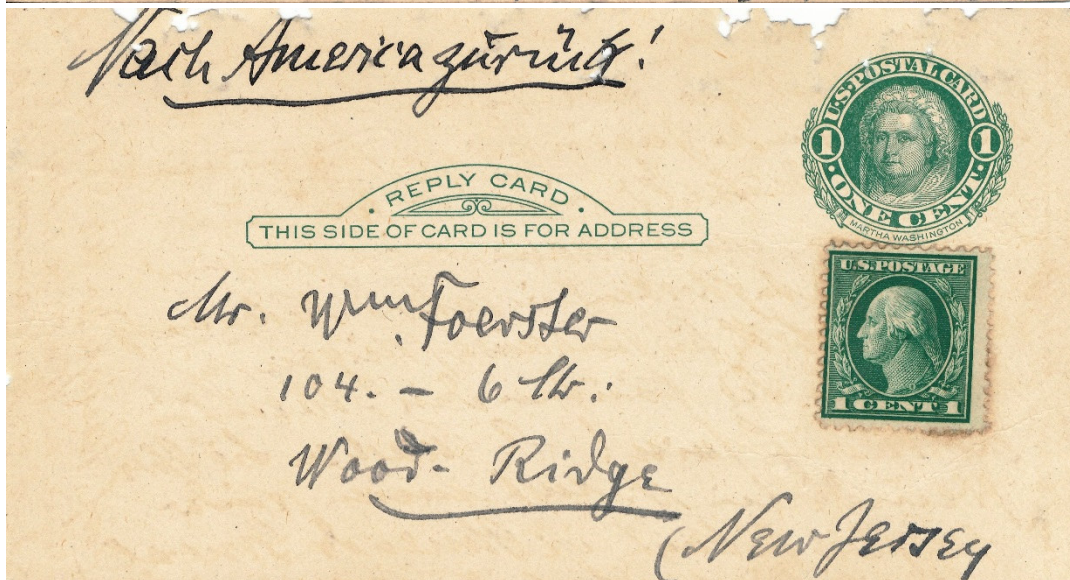 Nach America zurück!
U.S. POSTAL CARD
1 1
ONE CENT
MARTHA WASHINGTON
· REPLY CARD ·
THIS SIDE OF CARD IS FOR ADDRESS
U.S. POSTAGE
1 CENT 1
Mr. Wm. Foerster
104. – 6 Str:
Wood-Ridge
(New Jersey